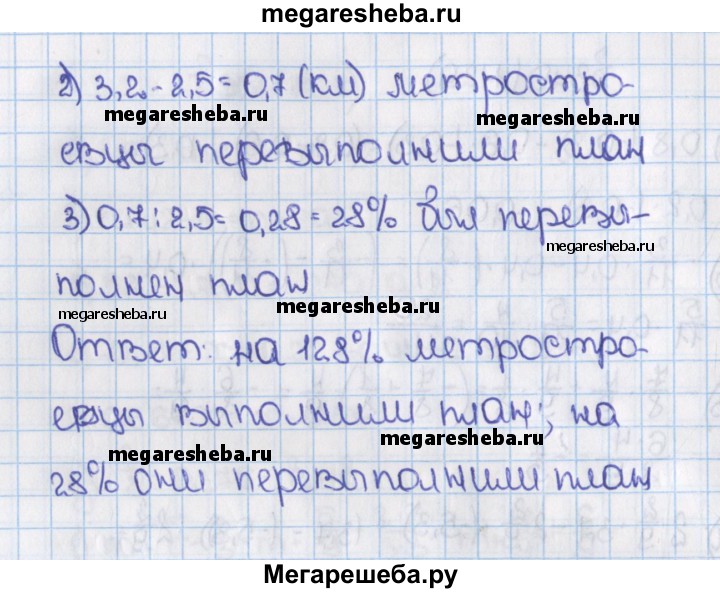 megaresheba.ru
2) 3,2 - 2,5 = 0,7 (км) метростро-
megaresheba.ru
megaresheba.ru
евцы перевыполнили план
3) 0,7 : 2,5 = 0,28 = 28% был перевы-
megaresheba.ru
полнен план
megaresheba.ru
megaresheba.ru
Ответ: на 128% метростро-
евцы выполнили план; на
megaresheba.ru
megaresheba.ru
28% они перевыполнили план
Мегарешеба.ру